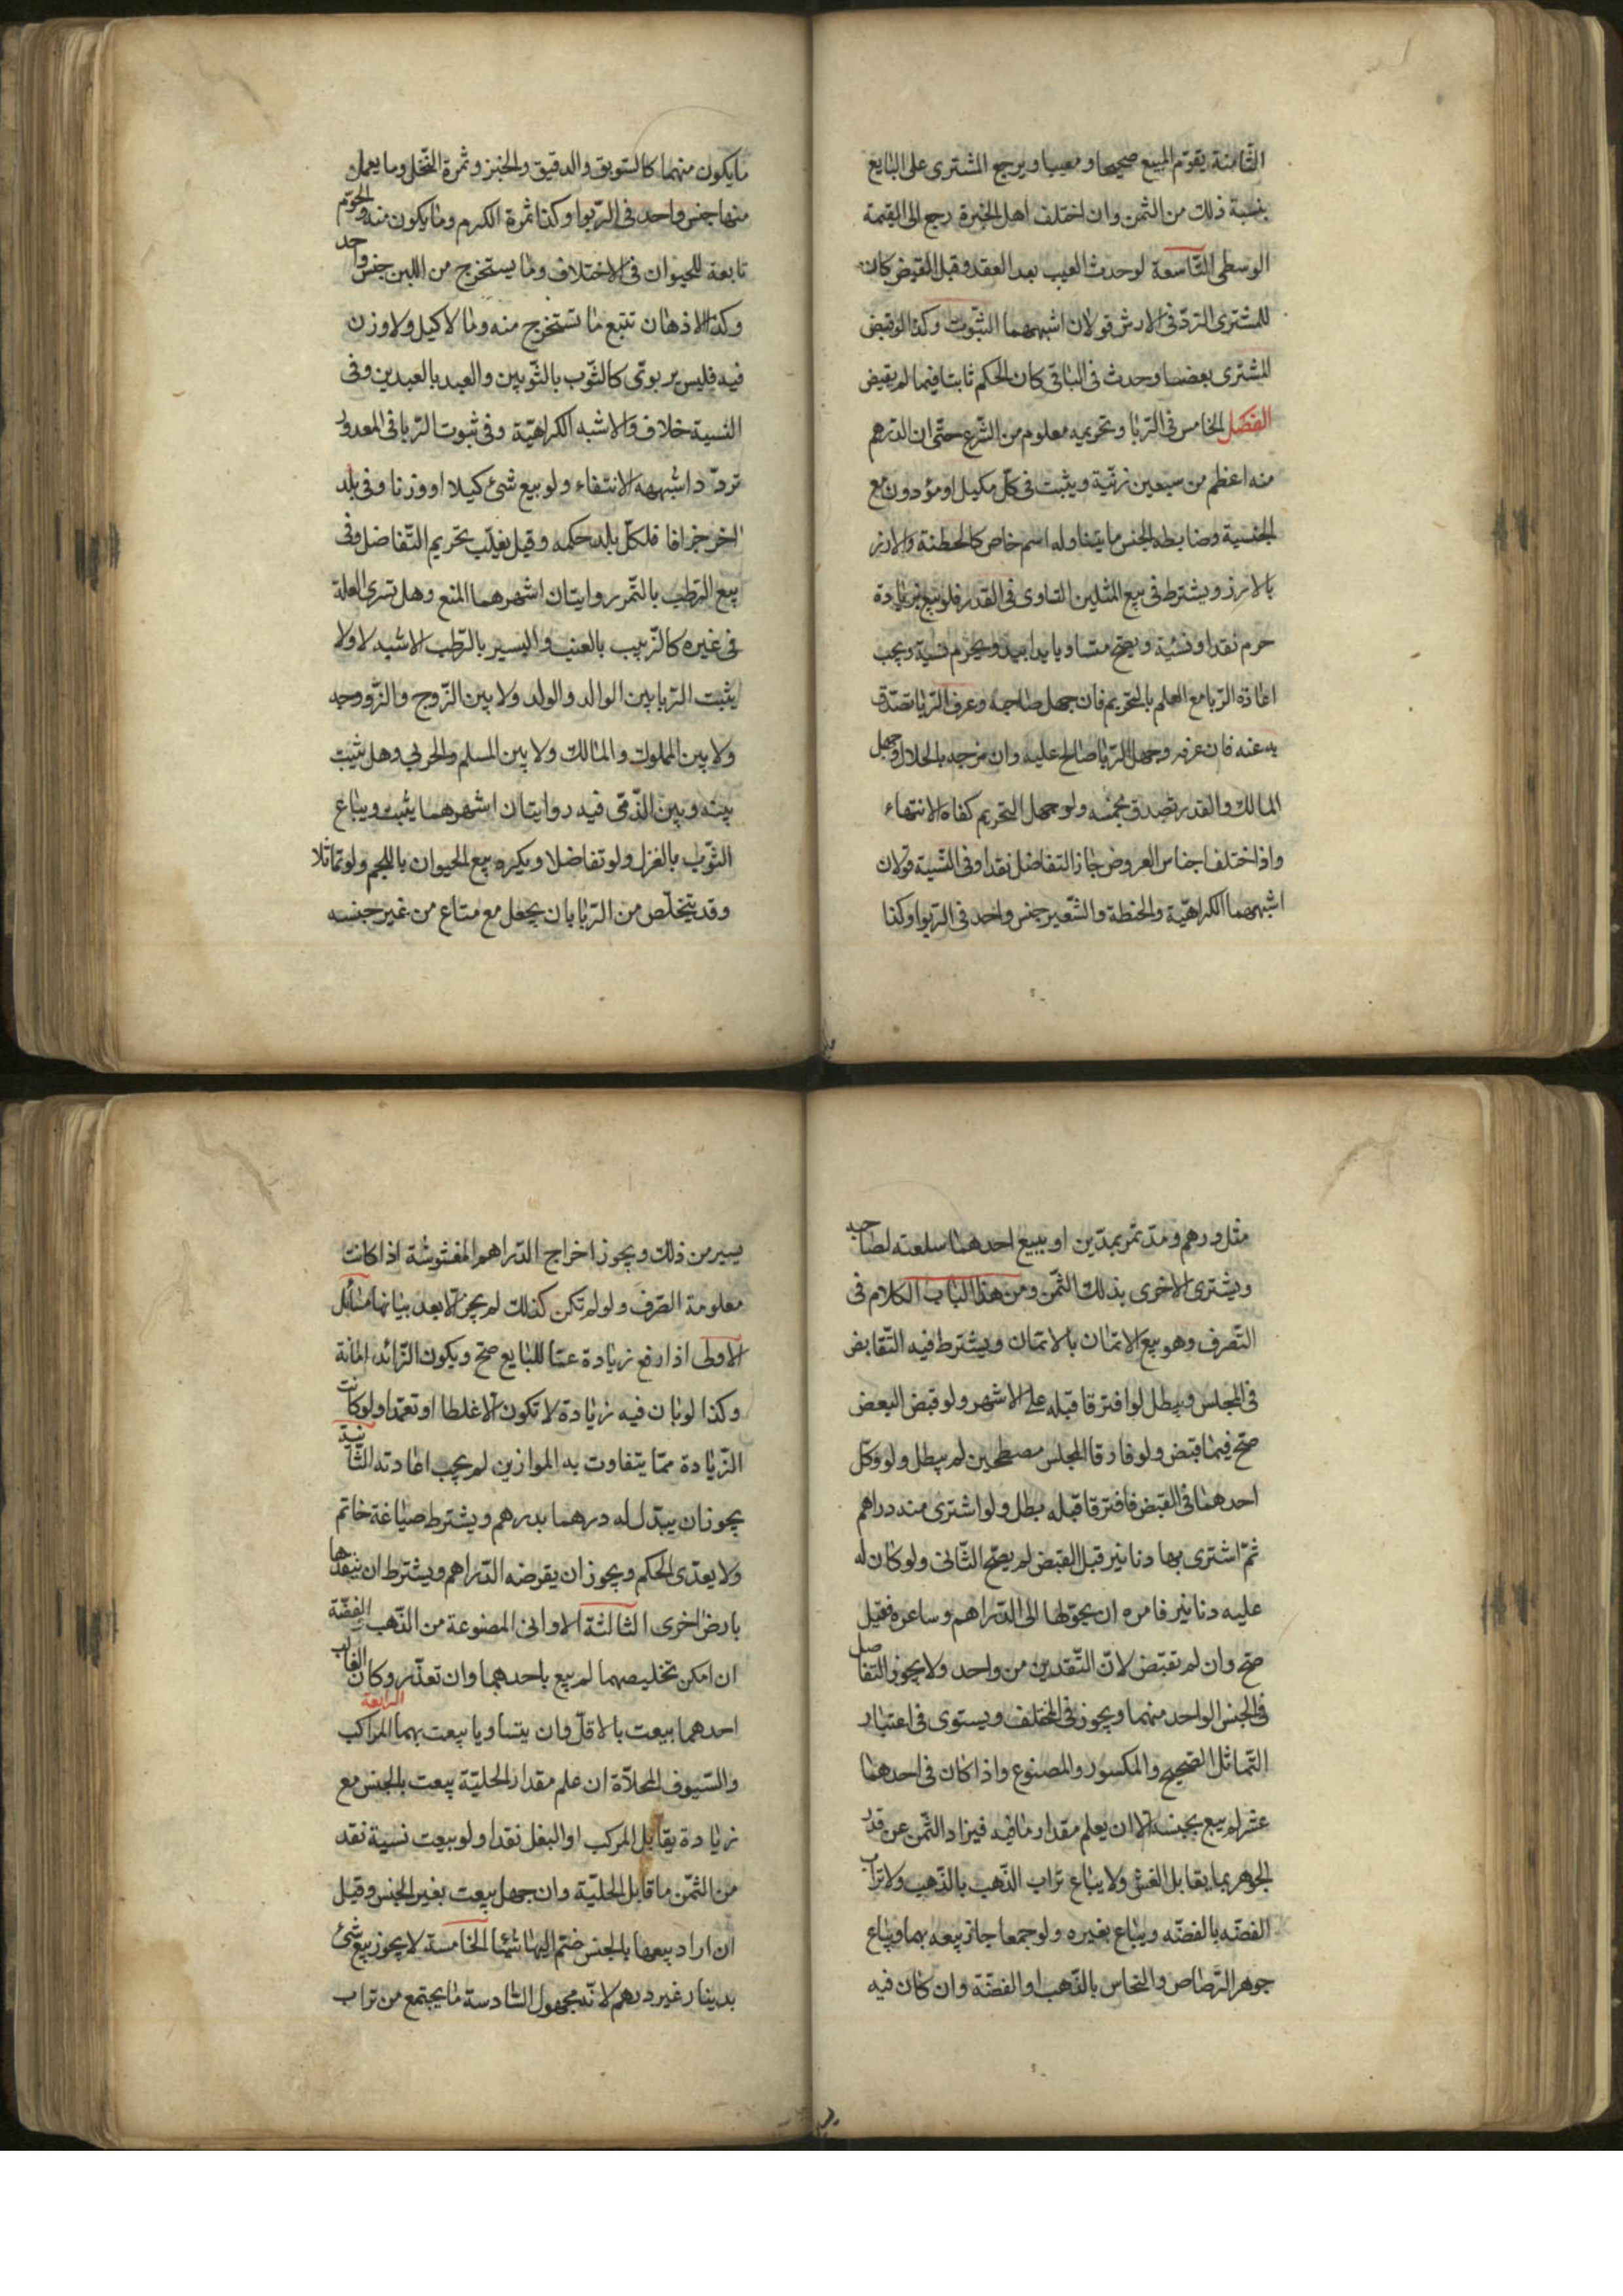 الثّامنة يقوّم المبيع صحيحا و معيبا و يرجع المشترى على البايع
بنسبة ذلك من الثمن وان اختلف اهل الخبرة رجع الى القيمة
الوسطى التّاسعة لو حدث العيب بعد العقد و قبل القبض كان
للمشترى الردّ فى الارش قولان اشبههما الثبوت وكذا لو قبض
المشترى بعضا و حدث فى الباقى كان الحكم ثابتا فيما لم يقبض
الفصل الخامس فى الرّبا و تحريمه معلوم من الشّرع حتّى ان الدّرهم
منه اعظم من سبعين زنية و يثبت فى كلّ مكيل او موزون مع
الجنسية و ضابطه الجنس ما يتناوله اسم خاص كالحطنة والارز
بالارز و يشترط فى بيع المثلين التساوى فى القدر فلو بيع بزيادة
حرم نقدا و نسئية و يصحّ متساويا يدا بيد و يحرم نسية و يجب
اعادة الرّبا مع العلم بالتحريم فان جهل صاحبه و عرف الرّبا تصدّق
به عنه فان عرفه و جهل الرّبا صالح عليه وان مزجه بالحلال و جهل
المالك والقدر تصدق بخمسه ولو جهل التحريم كفاه الانتهاء
واذا اختلف اجناس العروض جاز التفاضل نقدا و فى النّسية قولان
اشبههما الكراهيّة والحنطة والشّعير جنس واحد فى الرّبوا وكذا
ما يكون منهما كالسّويق والدقيق والخبز و ثمرة النّخل وما يعمل
منها جنس واحد فى الرّبوا وكذا ثمرة الكرم وما يكون منه واللحوم
تابعة للحيوان فى الاختلاف وما يستخرج من اللبن جنس واحد
وكذا الادهان تتبع ما تستخرج منه وما لا كيل ولا وزن
فيه فليس بربوىّ كالثّوب بالثّوبين والعبد بالعبدين وفى
النسية خلاف والاشبه الكراهيّة وفى ثبوت الرّبا فى المعدود
تردّد اشبهه الانتفاء ولو بيع شئ كيلا او وزنا وفى بلد
اخر جزافا فلكلّ بلد حكمه وقيل يغلّب تحريم التّفاضل وفى
بيع الرّطب بالتّمر روايتان اشهرهما المنع وهل تسرى العلة
فى غيره كالزّبيب بالعنب والبسر بالرّطب الاشبه لا ولا
يثبت الرّبا بين الوالد والولد ولا بين الزّوج والزّووجه
ولا بين المملوك والمالك ولا بين المسلم والحربى وهل يثبت
بينه و بين الذّمّى فيه روايتان اشهرهما يثبت و يباع
الثّوب بالغزل ولو تفاضلا و يكره بيع الحيوان باللحم ولو تماثلا
وقد يتخلّص من الرّبا بان يجعل مع متاع من غير جنسه
مثل درهم و مدّ تمر بمدّين او يبيع احدهما سلعته لصاحبه
و يشترى الاخرى بذلك الثّمن ومن هذا الباب الكلام فى
التّصرف وهو بيع الاثمان بالاثمان و يشترط فيه التّقابض
فى المجلس و يبطل لو افترقا قبله على الاشهر ولو قبض البعض
صحّ فيما قبض ولو فارقا المجلس مصطحبين لم يبطل ولو وكّل
احدهما فى القبض فافترقا قبله بطل ولو اشترى منه دراهم
ثمّ اشترى بها دنانير قبل القبض لم يصحّ الثّانى ولو كان له
عليه دنانير فامره ان يحوّلها الى الدّراهم وساعره فقيل
صحّ وان لم تقبض لانّ النّقدين من واحد ولا يجوز التفاضل
فى الجنس الواحد منهما و يجوز فى المختلف و يستوى فى اعتبار
التّماثل الصّحيح والمكسور والمصنوع واذا كان فى احدهما
غش لم يبع بجنسه الا ان يعلم مقدار ما فيه فيزاد الثّمن عن قدر
الجوهر بما يقابل الغشّ ولا يباع تراب الذّهب بالذّهب ولا تراب
الفضّه بالفضّه و يباع بغيره ولو جمعا جاز بيعه بهما و يباع
جوهر الرّصاص والنحاس بالذّهب او الفضّة وان كان فيه
يسير من ذلك و يجوز اخراج الدّراهم المغشوشة اذا كانت
معلومة الصّرف ولو لم تكن كذلك لم يجز الا بعد بيانها مسائل
الاولى اذا دفع زيادة عمّا للبايع صحّ و يكون الزّائد امانة
وكذا لو بان فيه زيادة لا تكون الا غلطا او تعمّدا ولو كانت
الزّيادة ممّا يتفاوت به الموازين لم يجب اعادته الثّانية
يجوز ان يبدّل له درهما بدرهم و يشترط صياغة خاتم
ولا يعدّى الحكم و يجوز ان يقرضه الدّراهم و يشترط ان ينقدها
بارض اخرى الثالثة الاوانى المصنوعة من الذّهب والفضّة
ان امكن تخليصهما لم يبع باحدهما وان تعذّر وكان الغالب
احدهما بيعت بالاقلّ وان يتساويا بيعت بهما الرابعة المراكب
والسّيوف المحلاّة ان علم مقدار الحليّة بيعت بالجنس مع
زيادة يقابل المركب او النعل نقدا ولو بيعت نسية نقد
من الثّمن ما قابل الحليّة وان جهل بيعت بغير الجنس وقيل
ان اراد بيعها بالجنس ضمّ اليها شيئا الخامسة لا يجوز بيع شئ
بدينار غير درهم لانّه مجهول السّادسة ما يجتمع من تراب